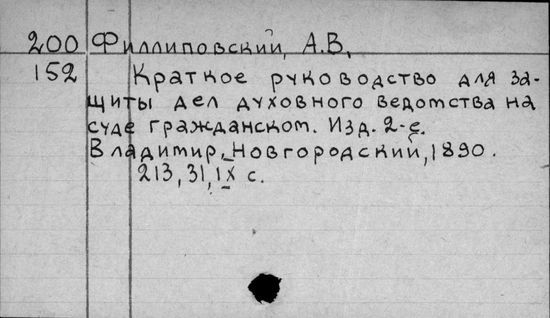 200 Филлиповский, А.В.
152 Краткое руководство для за-
щиты дел духовного ведомства на
суде гражданском. Изд. 2-е.
Владимир, Новгородский, 1890.
213, 31, IX с.